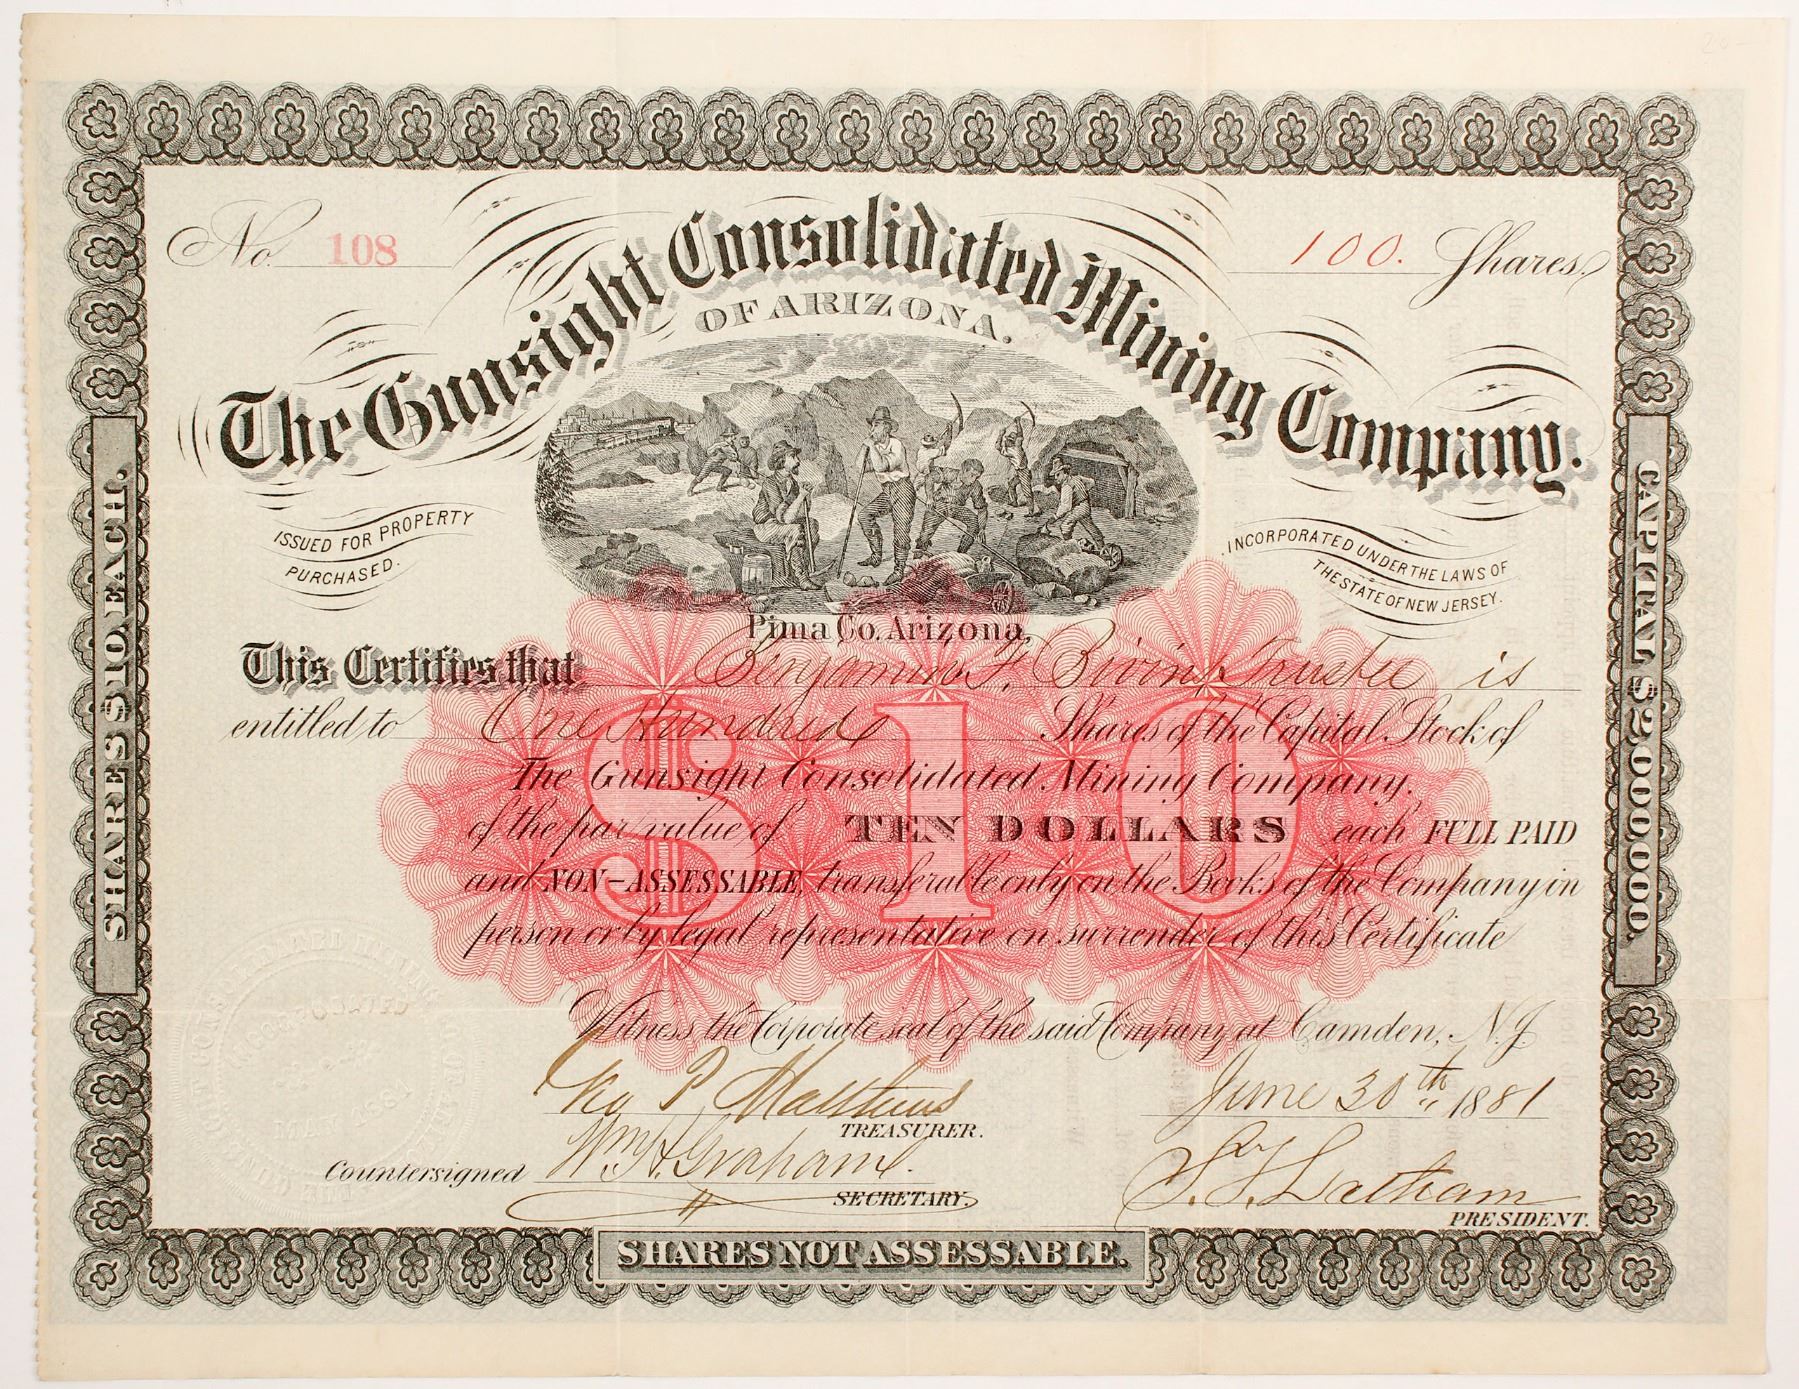 No. 108
100. Shares.
The Gunsight Consolidated Mining Company.
OF ARIZONA.
ISSUED FOR PROPERTY
PURCHASED.
INCORPORATED UNDER THE LAWS OF
THE STATE OF NEW JERSEY.
Pima Co. Arizona,
This Certifies that Benjamin F. Bivins Trustee is
entitled to One Hundred Shares of the Capital Stock of
The Gunsight Consolidated Mining Company.
of the par value of TEN DOLLARS each FULL PAID
and NON-ASSESSABLE, transferable only on the Books of the Company in
person or by legal representative on surrender of this Certificate
$10
Witness the Corporate seal of the said Company at Camden, N.J.
Geo P. Matthews June 30th 1881
TREASURER.
Countersigned Wm H. Graham S. T. Latham
SECRETARY. PRESIDENT.
SHARES NOT ASSESSABLE.
SHARES $10. EACH.
CAPITAL $2,000,000.
INCORPORATED
JAN 1881